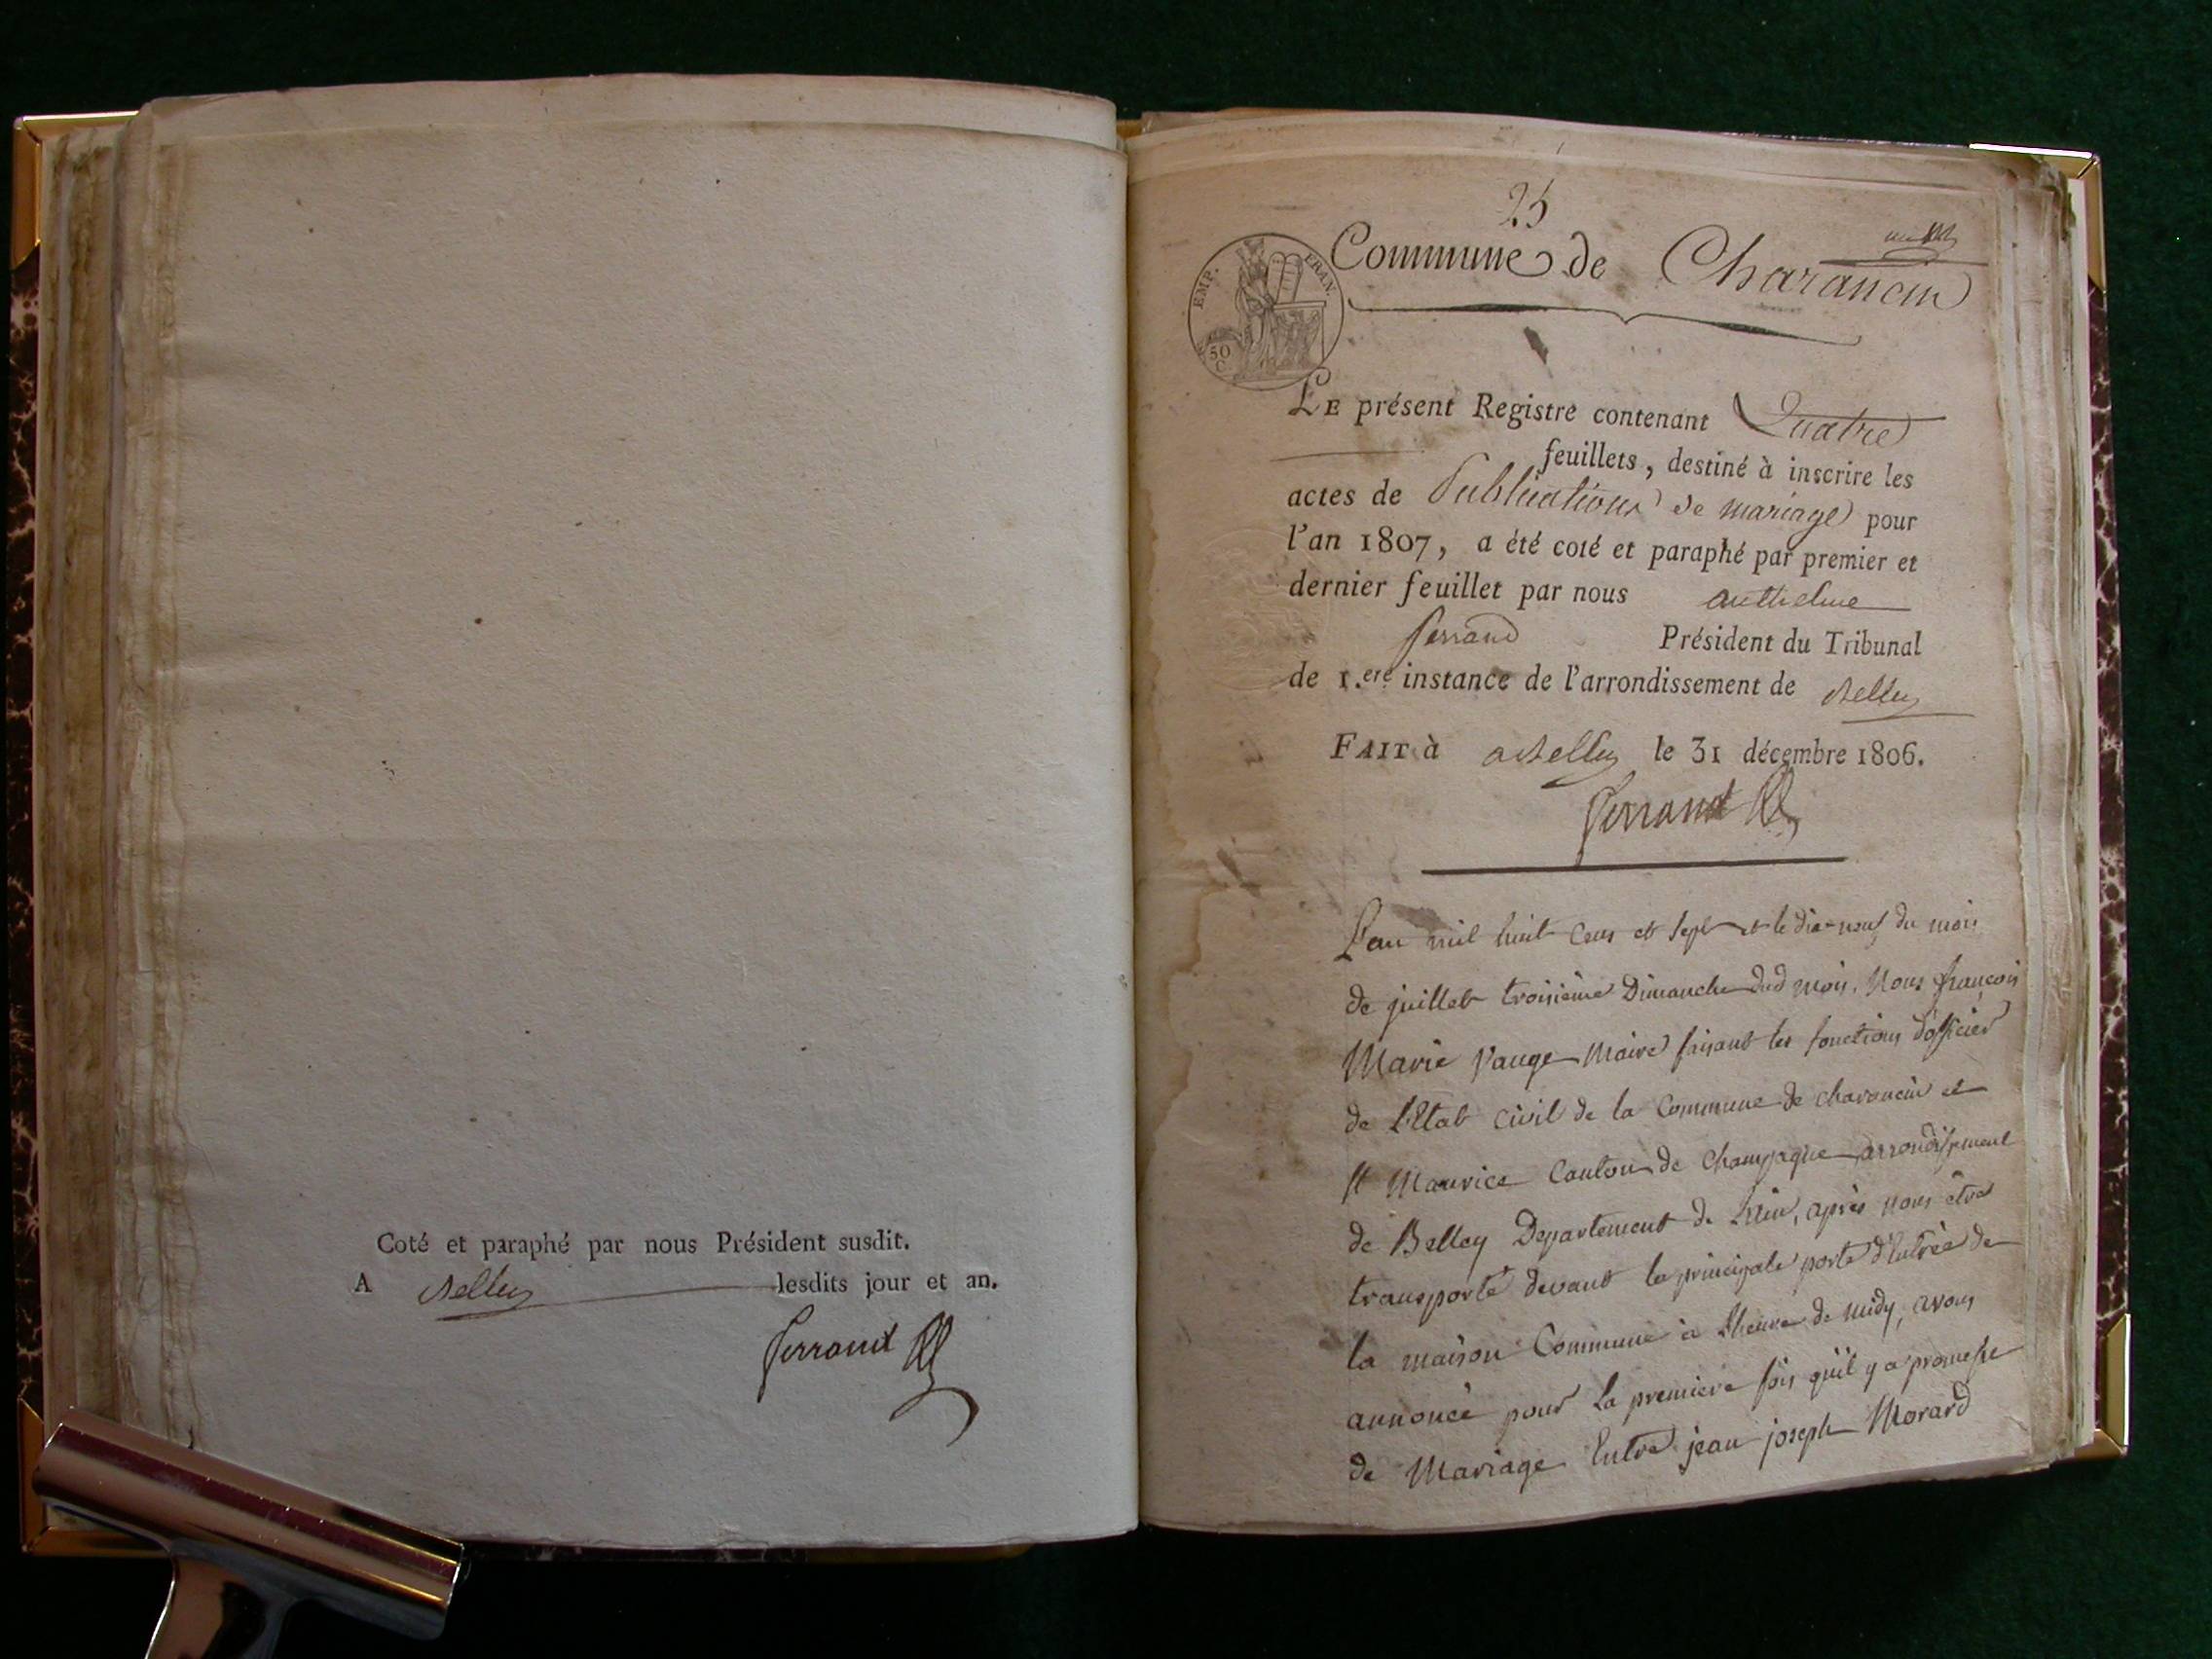 Coté et paraphé par nous Président susdit.
A Belley lesdits jour et an.
Ferrand
25
Commune de Charancin
EMP. FRAN.
50
C.
LE présent Registre contenant Quatre
feuillets, destiné à inscrire les
actes de Publications de mariage pour
l'an 1807, a été coté et paraphé par premier et
dernier feuillet par nous anthelme
ferrand Président du Tribunal
de 1.ere instance de l'arrondissement de Belley
FAIT à a Belley le 31 décembre 1806.
Ferrand
L'an mil huit cens et sept et le dix-neuf du mois
de juillet troisième Dimanche dud mois. Nous françois
Marie Vauge Maire faisant les fonctions d'officier
de L'Etat civil de la Commune de charancin et
st Maurice Canton de Champagne arrondissement
de Belley Departement de L'ain, après nous être
transporté devant la principale porte d'Entrée de
la maison Commune à L'heure de midy, avons
annoncé pour la premiere fois qu'il y a promesse
de Mariage Entre jean joseph Morard